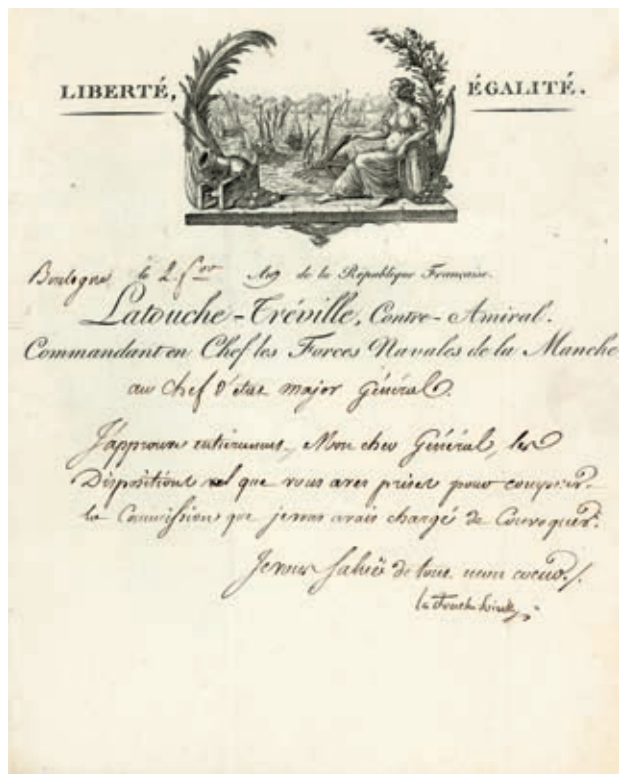 LIBERTÉ, ÉGALITÉ.
Boulogne, le 2 f.or An 9 de la République Française.
Latouche-Tréville, Contre-Amiral.
Commandant en Chef les Forces Navales de la Manche
au Chef d'état major Général.
J'approuve entièrement, Mon cher Général, les
Dispositions que vous avez prises pour
la Commission que je vous avais chargé de Convoquer.
Je vous Salue de tout mon coeur./.
la Touche Tréville